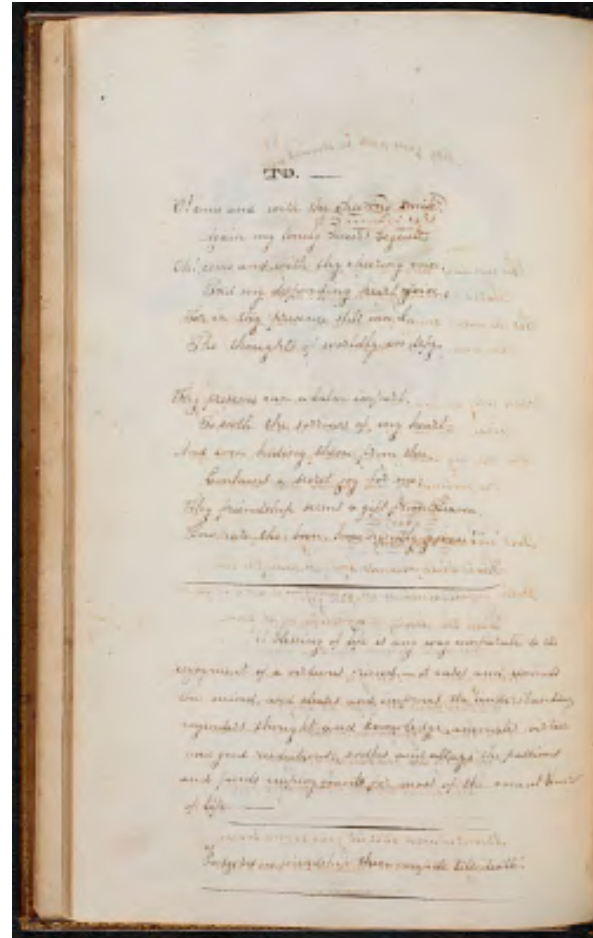 TO. ——
O! come and with thy cheering smile
Again my lonely heart
Oh! come and with thy cheering voice
Bid my desponding heart rejoice
For in thy presence still can I
The thoughts of worldly woe defy.
Thy presence can a balm impart,
To sooth the sorrows of my heart
And even hiding them from thee
Contains a secret joy for me,
Thy friendship seems a gift from Heaven
How rate the boon
blessing of life is any way comparable to the
enjoyment of a virtuous friend, it eases and unloads
the mind, and clears and improves the understanding
engenders thought and knowledge, animates virtue
and good resolutions, soothes and allays the passions
and finds employment for most of the vacant hours
of life. ——
friendship